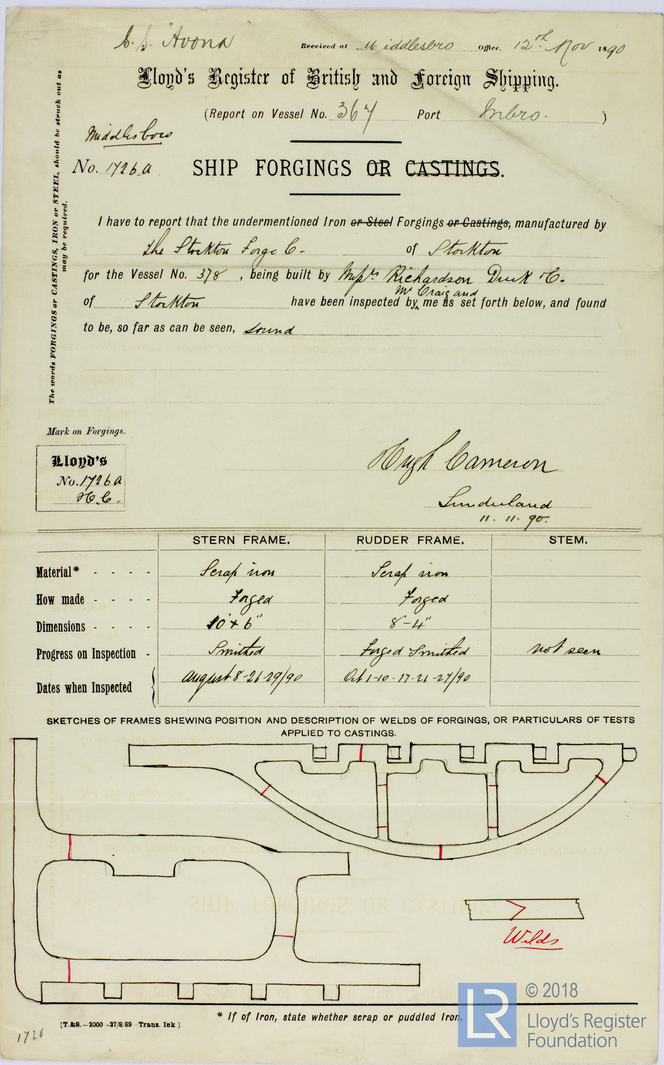 S.S. "Avona"
Received at Middlesbro Office, 12th Nov 1890
Lloyd's Register of British and Foreign Shipping.
(Report on Vessel No. 367 Port Mbro. )
Middlesboro
No. 1726A SHIP FORGINGS OR CASTINGS.
The words FORGINGS or CASTINGS, IRON or STEEL, should be struck out as
may be required.
I have to report that the undermentioned Iron or Steel Forgings or Castings, manufactured by
The Stockton Forge Co. of Stockton
for the Vessel No. 378, being built by Messrs Richardson Duck & Co.
of Stockton have been inspected by Mr Craig and me as set forth below, and found
to be, so far as can be seen, sound
Mark on Forgings.
Lloyd's
No. 1726A
H.C.
Hugh Cameron
Sunderland
11.11.90.
STERN FRAME. RUDDER FRAME. STEM.
Material* - - - - Scrap iron Scrap iron
How made - - - - Forged Forged
Dimensions - - - - 10" x 6" 8"-4"
Progress on Inspection - Smithed Forged Smithed not seen
Dates when Inspected August 8-26-29/90 Oct 1-10-17-21-27/90
SKETCHES OF FRAMES SHEWING POSITION AND DESCRIPTION OF WELDS OF FORGINGS, OR PARTICULARS OF TESTS
APPLIED TO CASTINGS.
Welds
* If of Iron, state whether scrap or puddled Iron.
[T.&S.-2000-27/8/89-Trans. Ink]
1726
LR
© 2018
Lloyd's Register
Foundation